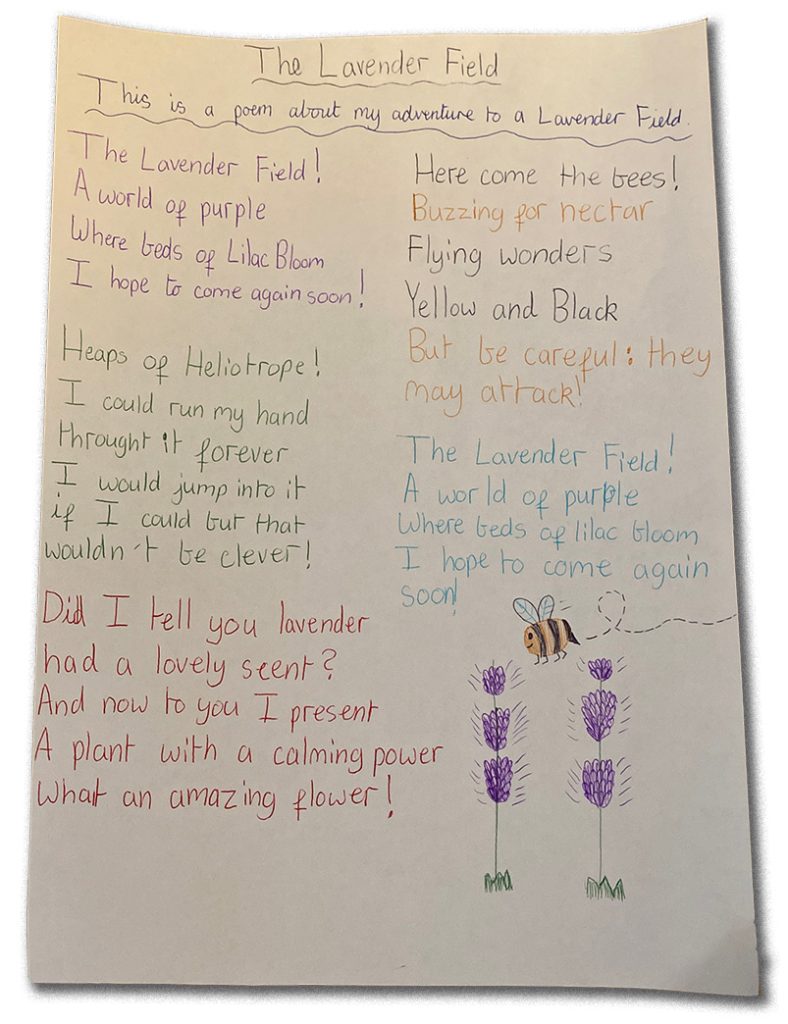 The Lavender Field
This is a poem about my adventure to a Lavender Field.
The Lavender Field!
A world of purple
Where beds of Lilac Bloom
I hope to come again soon!
Heaps of Heliotrope!
I could run my hand
throught it forever
I would jump into it
if I could but that
wouldn't be clever!
Did I tell you lavender
had a lovely scent?
And now to you I present
A plant with a calming power
What an amazing flower!
Here come the bees!
Buzzing for nectar
Flying wonders
Yellow and Black
But be careful: they
may attack!
The Lavender Field!
A world of purple
Where beds of lilac bloom
I hope to come again
soon!